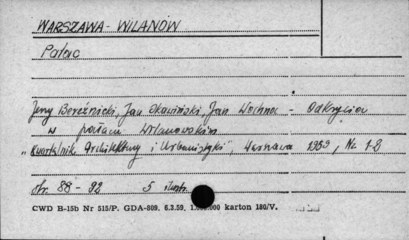 WARSZAWA - WILANÓW
Pałac
Jerzy Bereźnicki, Jan Okowiński, Jan Wochna - Odkrycia
w pałacu wilanowskim
„Kwartalnik Architektury i Urbanistyki", Warszawa 1963, Nr 1-2
str. 88 - 92 5 ilustr.
CWD B-15b Nr 515/P. GDA-809. 6.3.59. karton 180/V.